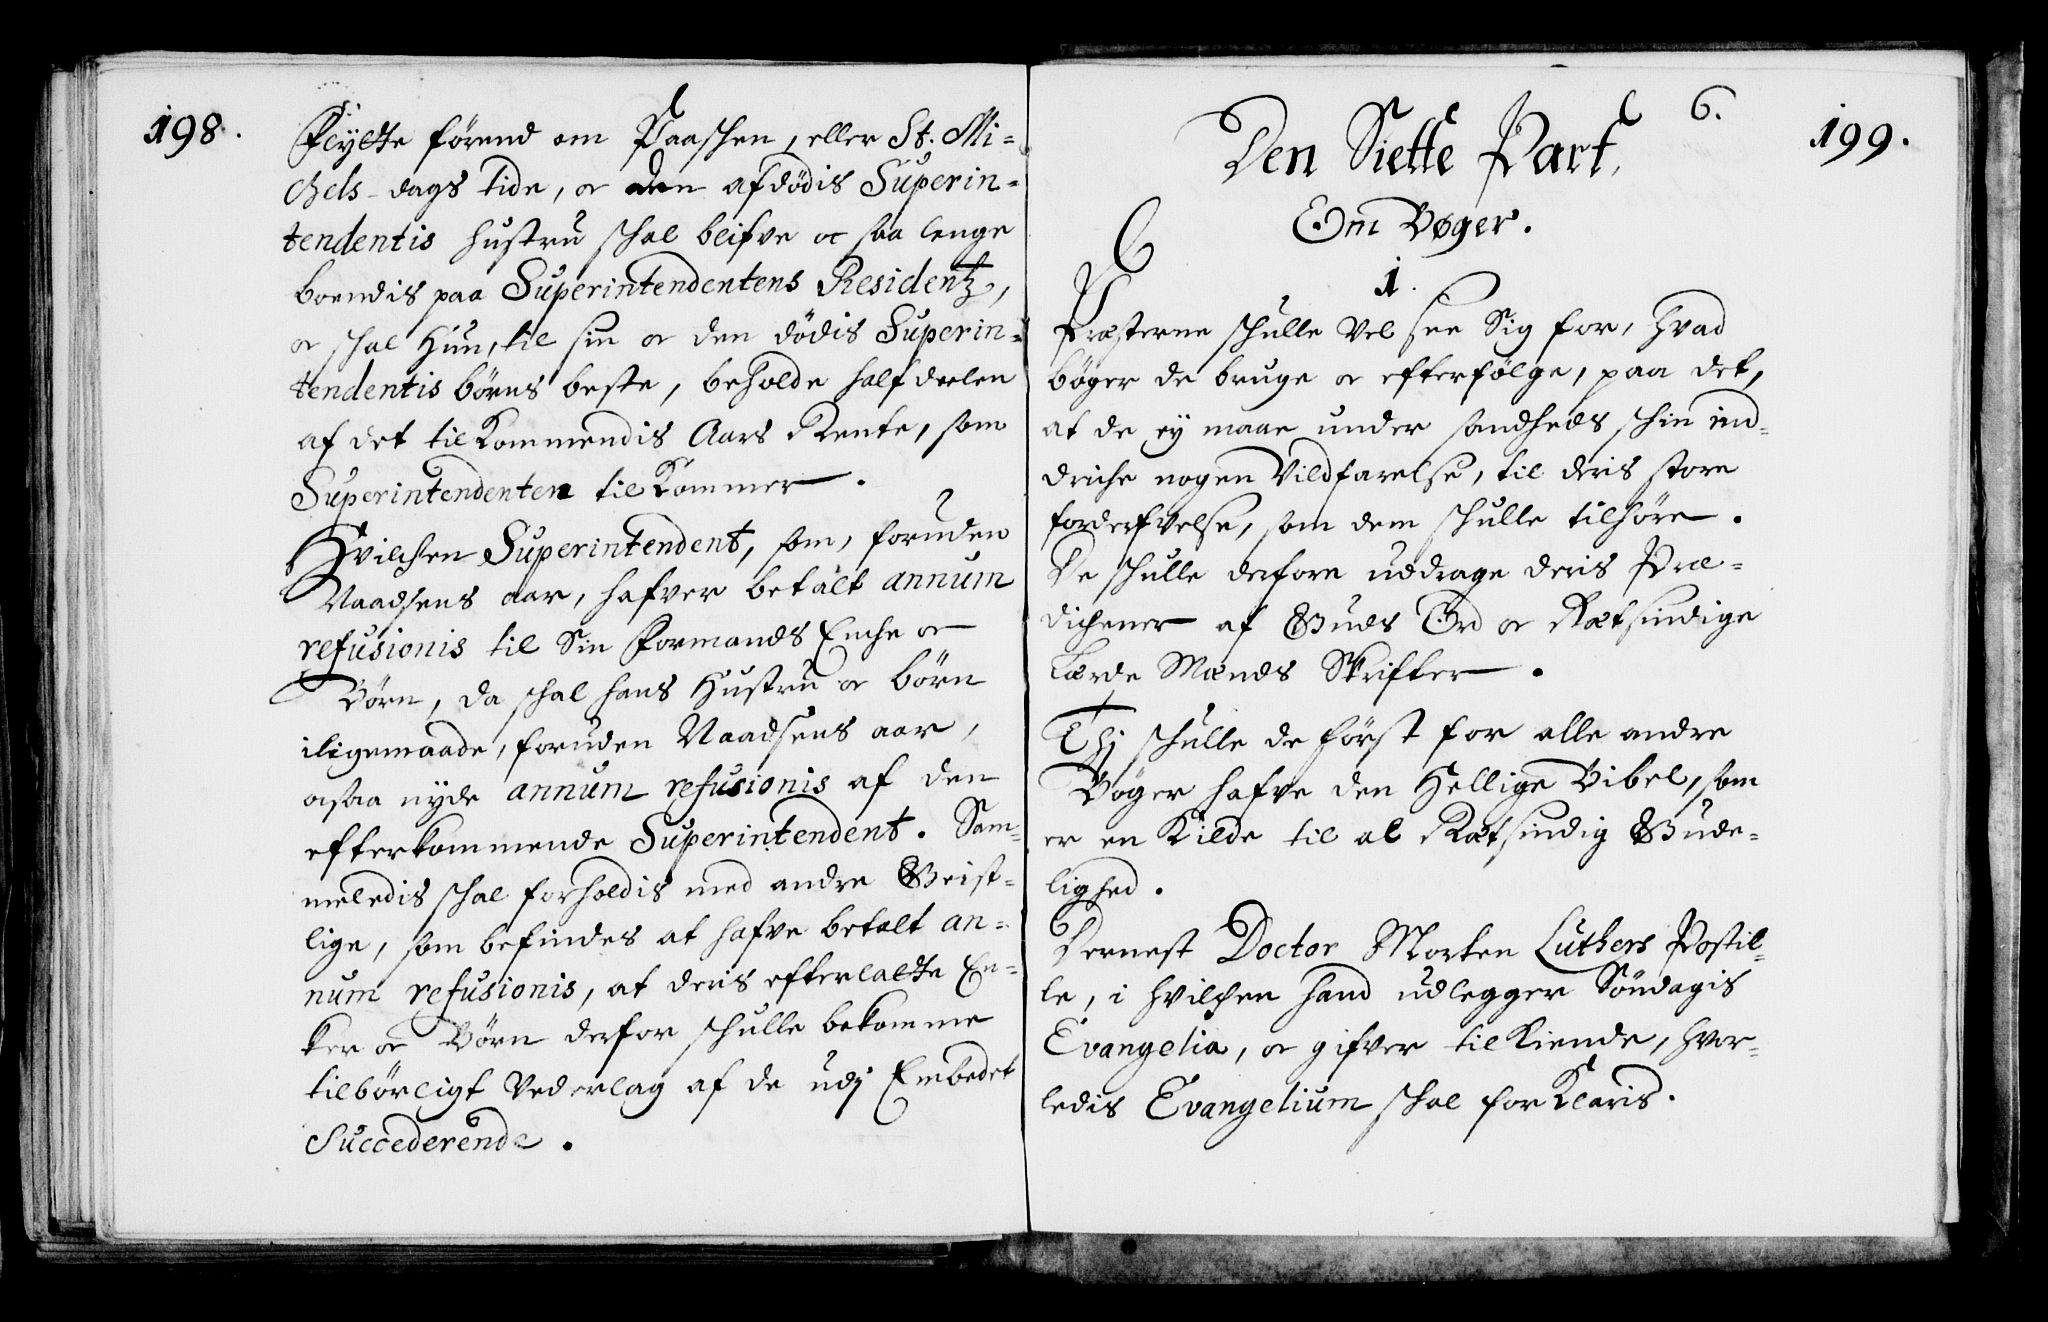 198.
Flyttе førend om Paaschen, eller St. Mi-
chels-dags tide, oc den afdødis Superin-
tendentis hustru schal blifve oc saa lenge
boendis paa Superintendentens Residentz,
oc schal Hun, til sin oc den dødis Superin-
tendentis børns beste, beholde half deelen
af det tilkommendis Aars Rente, som
Superintendenten tilkommer.
Hvilchen Superintendent, som, foruden
Naadsens aar, hafver betalt annum
refusionis til Sin Formands Enche oc
Børn, da schal hans Hustru oc børn
iligemaade, foruden Naadsens aar,
ocsaa nyde annum refusionis af den
efterkommende Superintendent. Sam-
meledis schal forholdis med andre Geist-
lige, som befindes at hafve betalt an-
num refusionis, at deris efterlatte En-
ker oc Børn derfor schulle bekomme
tilbørligt Vederlag af de udj Embedet
Succederende.
6.
199.
Den Siette Part,
Om Bøger.
1.
Præsterne schulle vel see Sig for, hvad
bøger de bruge oc efterfølge, paa det,
at de ey maae under sandheds schin ind-
driche nogen Vildfarelse, til deris store
forderfvelse, som dem schulle tilhøre.
De schulle derfore uddrage deris Præ-
dichener af Guds Ord oc Retsindige
Lærde Mænds Skrifter.
Thj schulle de først for alle andre
Bøger hafve den Hellige Bibel, som
er en Kilde til al Retsindig Gude-
lighed.
Dernest Doctor Morten Luthers Postil-
le, i hvilchen hand udlegger Søndagis
Evangelia, oc gifver tilkiende, hvor-
ledis Evangelium schal forklaris.